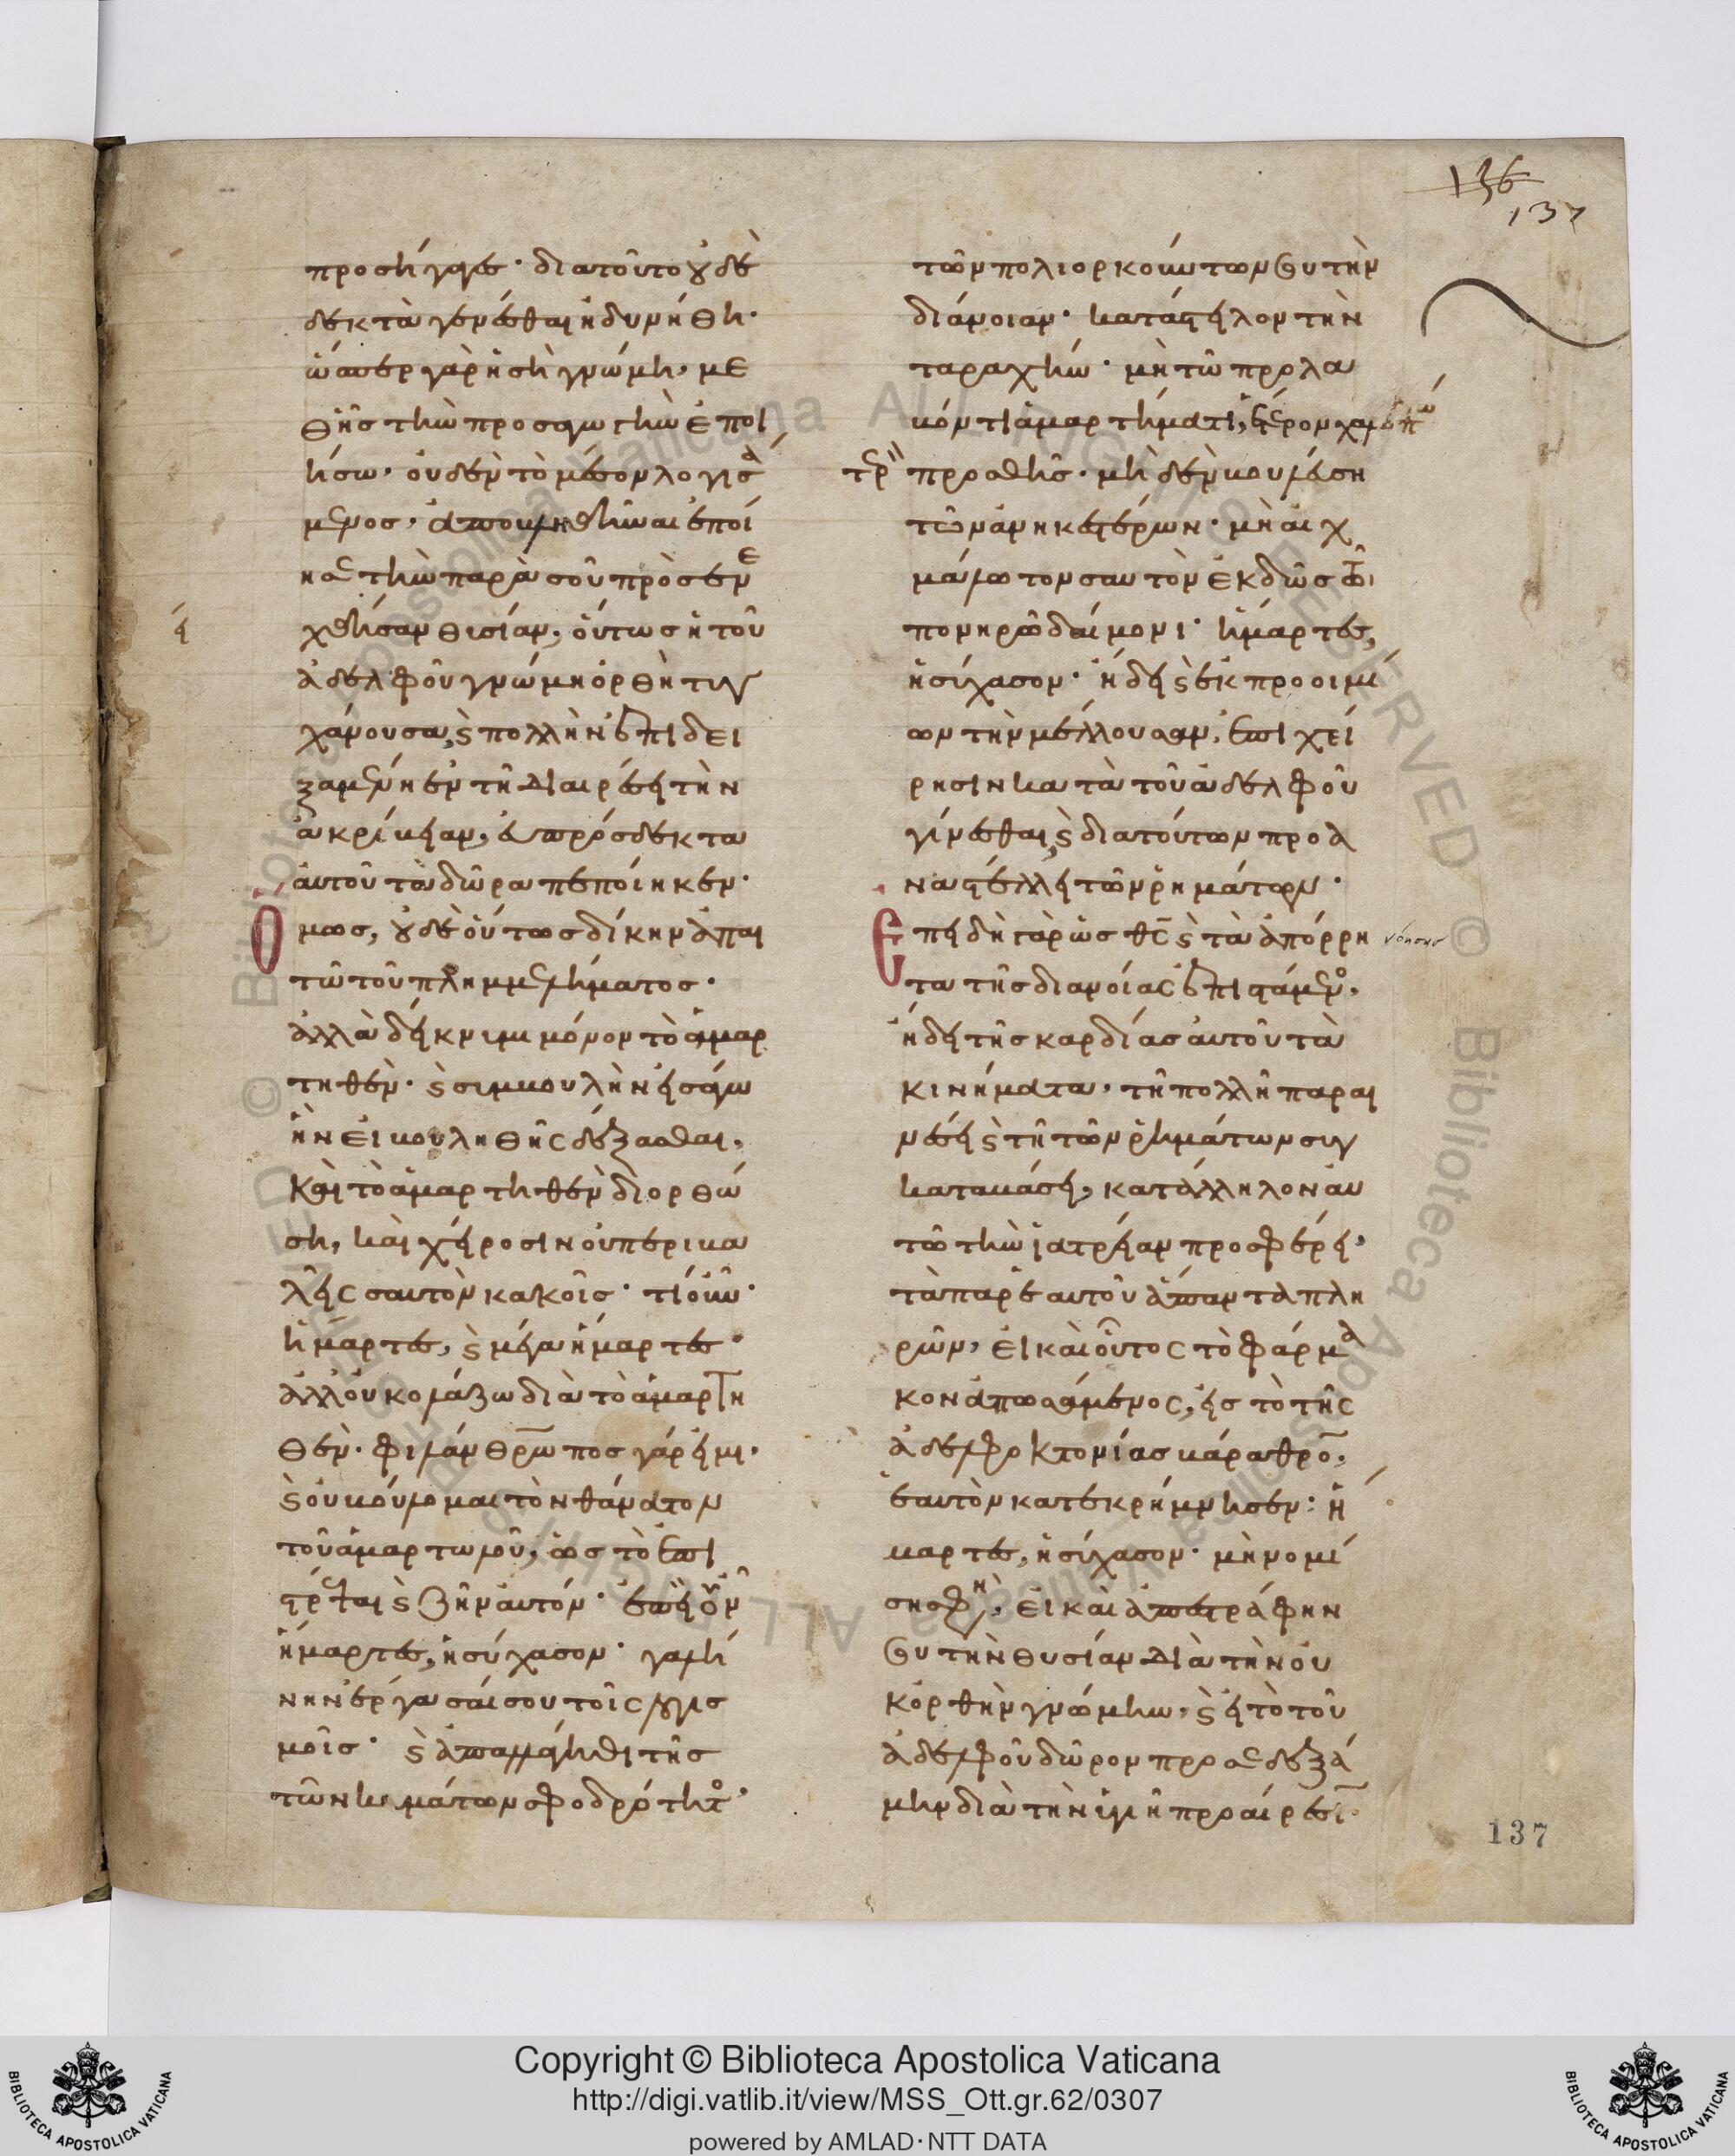 136
137
προσήγαγες· διατοῦτο οὐδὲ
δεκτὰ γενέσθαι ἠδυνήθη·
ὥσπερ γὰρ ἡ σὴ γνώμη, με
θῆς τὴν προσαγωγὴν ἐποι
ήσω· οὐδὲν τὸ μέσον λογισά
μενος, ἀποβληθῆναι ἐποί
ησε τὴν παρὰ σοῦ προσενε
χθήσαν θυσίαν, οὕτως ἡ τοῦ
ἀδελφοῦ γνώμη ὀρθὴ τυγ
χάνουσα, καὶ πολλὴν ἐπιδει
ξαμένη ἐν τῇ διαιρέσει τὴν
ἀκρίβειαν, εὐπρόσδεκτα
αὐτοῦ τὰ δῶρα πεποίηκεν·
Ὅμως, οὐδὲ οὕτως δίκην ἀπαι
τῶ τοῦ πλημμελήματος·
ἀλλὰ δείκνυμι μόνον τὸ ἁμαρ
τηθέν· καὶ συμβουλὴν εἰσάγω
ἣν εἰ βουληθῇς δέξασθαι,
καὶ τὸ ἁμαρτηθὲν διορθώ
ση, καὶ χείροσιν οὐ περιβα
λεῖς σαυτὸν κακοῖς· τί οὖν·
ἥμαρτες, καὶ μέγα ἥμαρτες·
ἀλλ' οὐ κολάζω διὰ τὸ ἁμαρτη
θέν· φιλάνθρωπος γάρ εἰμι·
καὶ οὐ βούλομαι τὸν θάνατον
τοῦ ἁμαρτωλοῦ, ὡς τὸ ἐπι
στρέψαι καὶ ζῆν αὐτόν· ἐπεὶ οὖν
ἥμαρτες, ἡσύχασον· γαλή
νην ἐργάσαι σου τοῖς λογισ
μοῖς· καὶ ἀπαλλάγηθι τῆς
τῶν κυμάτων σφοδρότητος·
τῶν πολιορκούντων σου τὴν
διάνοιαν· κατάστειλον τὴν
ταραχήν· μὴ τῶ προλα
βόντι ἁμαρτήματι, ἕτερον χαλεπώ
τερον προσθῇς· μηδὲν βουλεύση
τῶν ἀνηκέστρων· μὴ αἰχ
μάλωτον σαυτὸν ἐκδῶς τῶι
πονηρῶ δαίμονι· ἥμαρτες,
ἡσύχασον· ἤδει καὶ ἐκ προοιμί
ων τὴν μέλλουσαν, ἐπιχεί
ρησιν κατὰ τοῦ ἀδελφοῦ
γίνεσθαι, καὶ διατούτων προα
ναστέλλει τῶν ῥημάτων·
Ἐπειδὴ γὰρ ὡς θς καὶ τὰ ἀπόρρη
τα τῆς διανοίας ἐπιστάμενος,
ἤδει τῆς καρδίας αὐτοῦ τὰ
κινήματα, τῇ πολλῇ παραι
νέσει καὶ τῇ τῶν ῥημάτων συγ
καταβάσει, κατάλληλον αὐ
τῶ τὴν ἰατρείαν προσφέρει,
τὰ παρ' ἑαυτοῦ ἅπαντα πλη
ρῶν, εἰ καὶ οὗτος τὸ φάρμα
κον ἀπωσάμενος, εἰς τὸ τῆς
ἀδελφοκτονίας βάραθρον,
ἑαυτὸν κατεκρήμνησεν: ἥ
μαρτες, ἡσύχασον· μὴ νομί
σης φη, εἰ καὶ ἀπεστράφην
σου τὴν θυσίαν διὰ τὴν οὐ
κ ὀρθὴν γνώμην, καὶ εἰ τὸ τοῦ
ἀδελφοῦ δῶρον προσεδεξά
μην διὰ τὴν ὑγιῆ προαίρεσιν
137
Copyright © Biblioteca Apostolica Vaticana
http://digi.vatlib.it/view/MSS_Ott.gr.62/0307
powered by AMLAD·NTT DATA
BIBLIOTECA APOSTOLICA VATICANA
BIBLIOTECA APOSTOLICA VATICANA